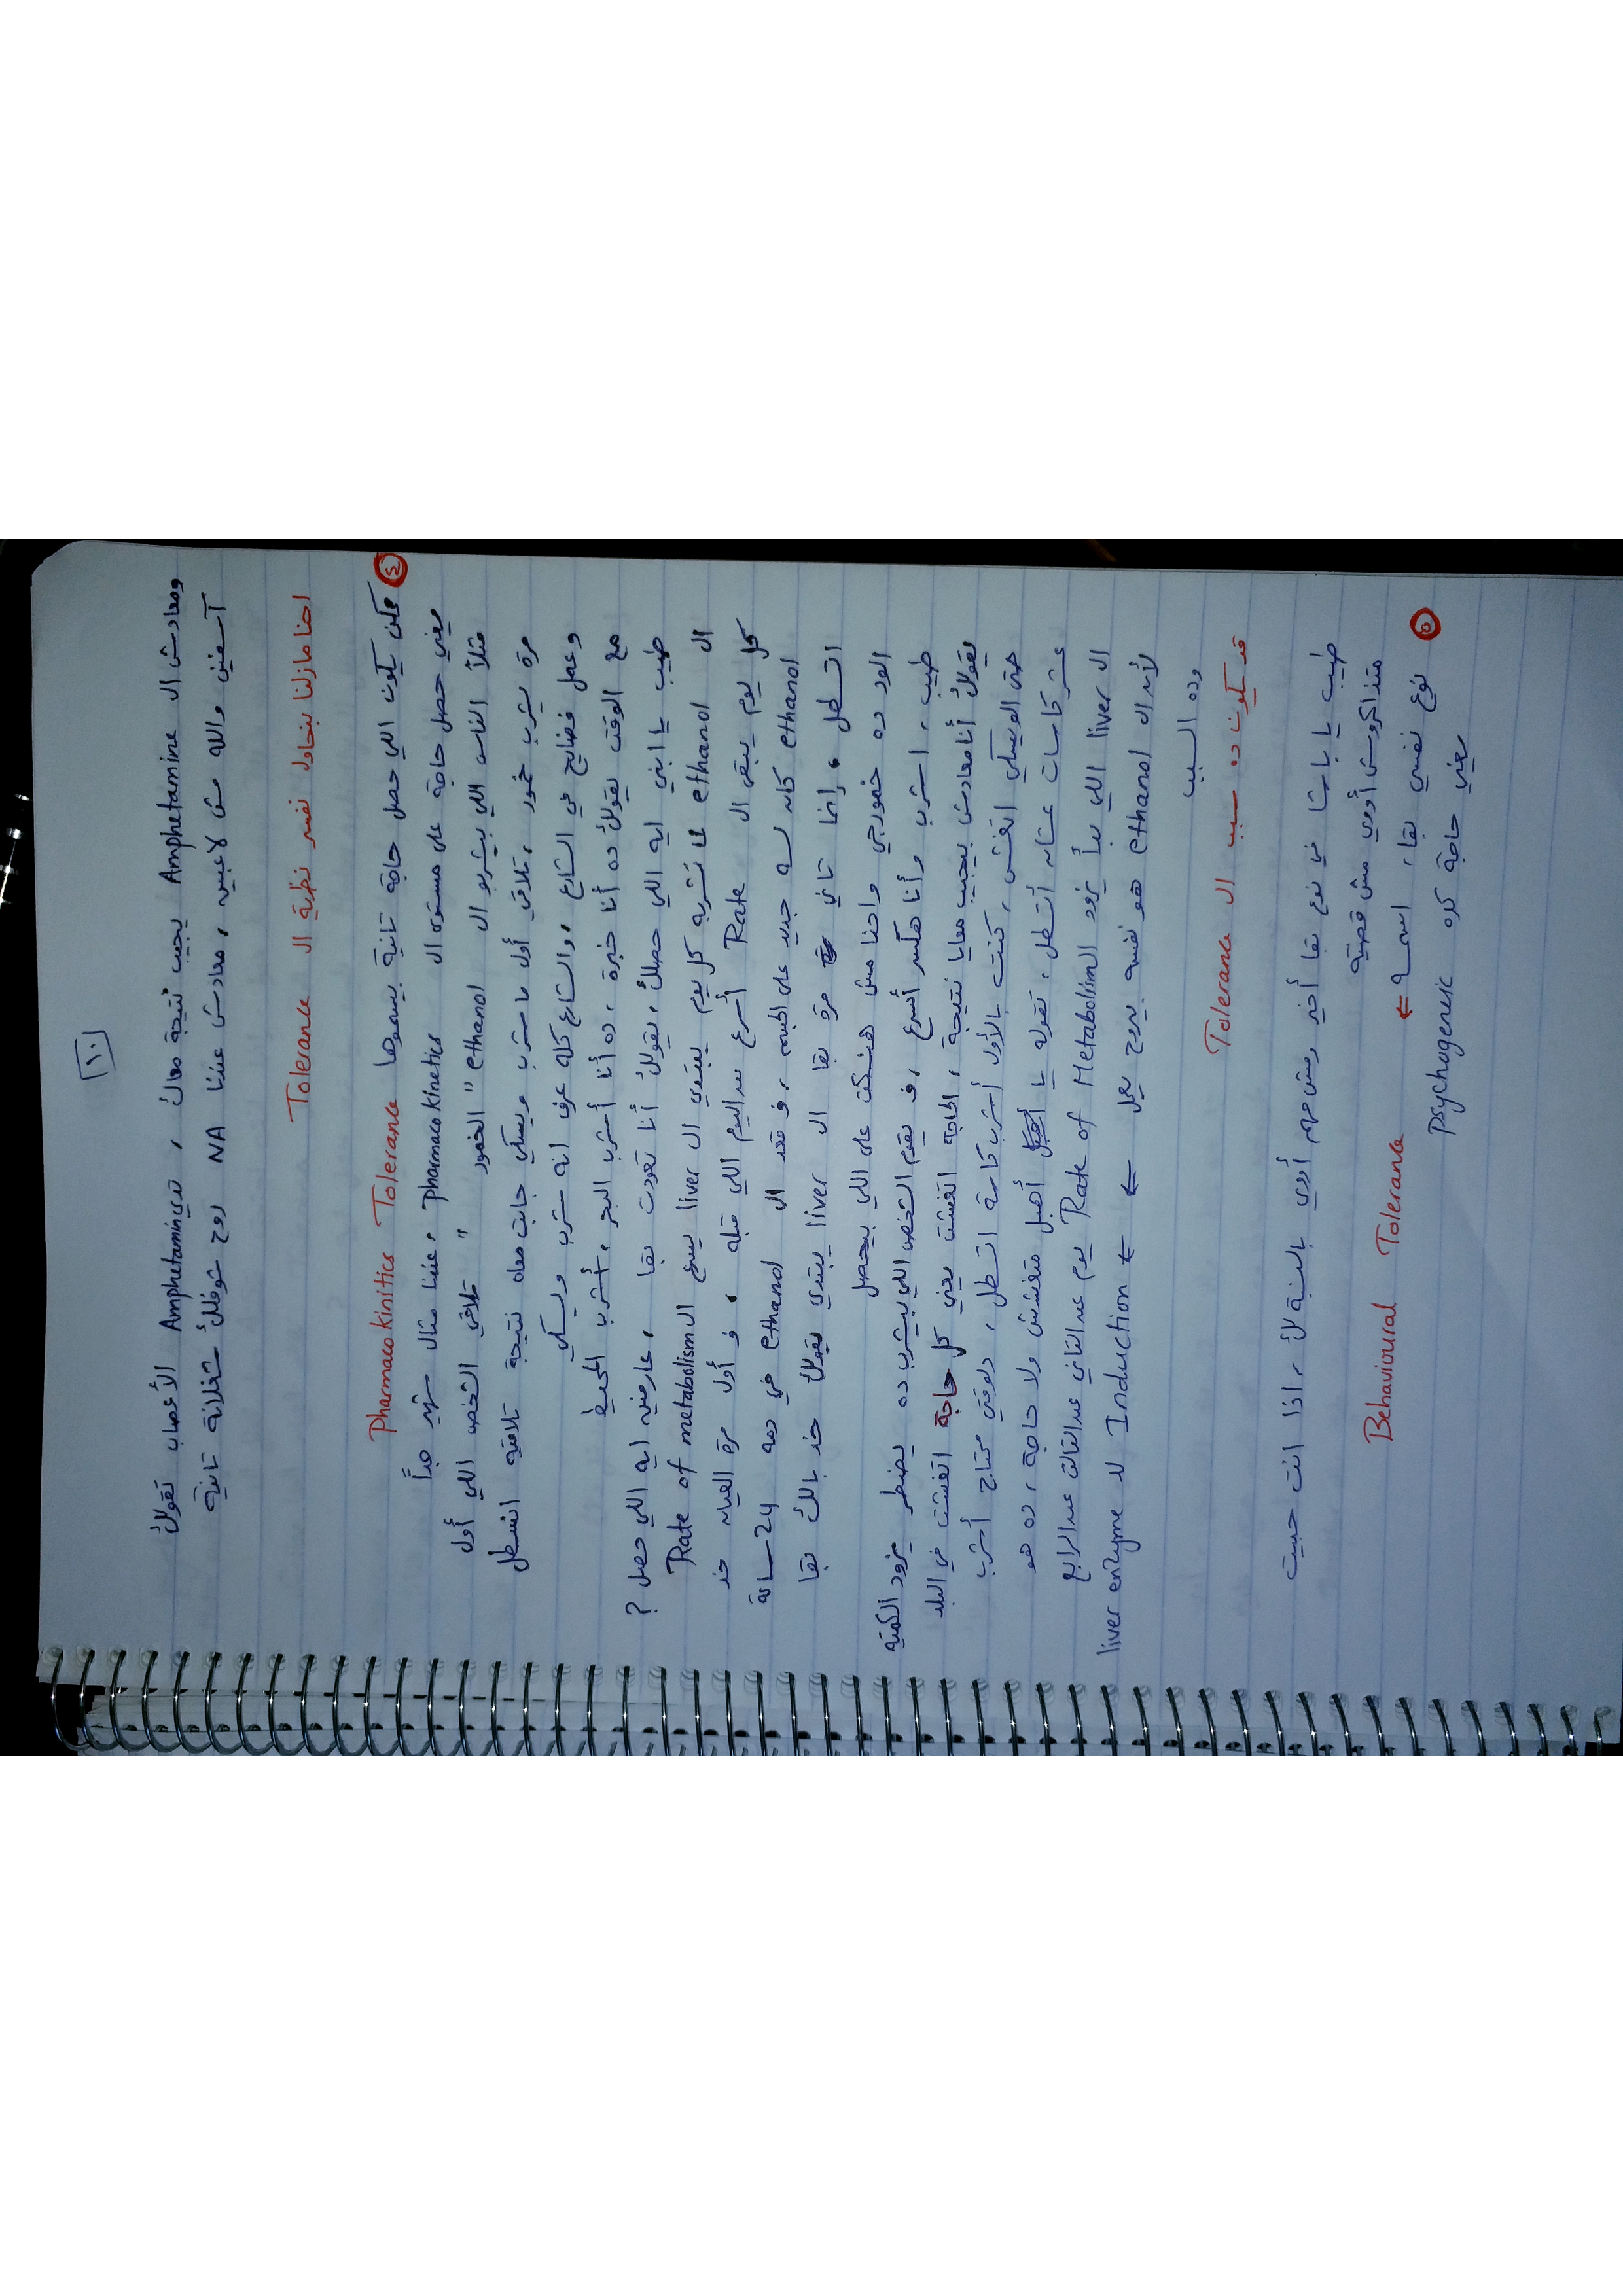 ١٠
ومعادش ال Amphetamine يجيب نتيجة معاك ، تدي Amphetamine الأعصاب تقولك
آسفين والله مش لاعبين ، معادش عندنا NA روح شوفلك شغلانة تانية
احنا مازلنا بنحاول نفسر نظرية ال Tolerance
٤ ممكن يكون اللي حصل حاجة تانية بيسموها Pharmacokinitics Tolerance
يعني حصل حاجة على مستوى ال Pharmacokinetics ، عندنا مثال شهير جداً
مثلاً الناس اللي بيشربو ال ethanol " الخمور " تلاقي الشخص اللي أول
مرة يشرب خمور ، تلاقي أول ما شرب ويسكي جابت معاه نتيجة تلاقيه اتسطل
وعمل فضايح في الشارع ، والشارع كله عرف انه شرب ويسكي
مع الوقت يقولك ده أنا خبرة ، ده أنا أشرب البحر ، أشرب المحيط
طيب يا ابني ايه اللي حصلك ، يقولك أنا تعودت بقا ، عارفين ايه اللي حصل ؟
ال ethanol لما تشربه كل يوم يبتدي ال liver يسرع ال Rate of metabolism
كل يوم يبقى ال Rate أسرع من اليوم اللي قبله ، ف أول مرة العيان خد
ethanol كان لسه جديد على الجسم ، ف قعد ال ethanol في دمه 24 ساعة
اتسطل ، إنما تاني مرة بقا ال liver يبتدي يقولك خد بالك بقا
الود ده خمورجي واحنا مش هنسكت على اللي بيحصل
طيب ، اشرب وأنا هكسر أسرع ، ف يقوم الشخص اللي بيشرب ده يضطر يزود الكمية
يقولك أنا معادش بيجيب معايا نتيجة ، الحاجة اتغشت يعني كل حاجة اتغشت في البلد
حتى الويسكي اتغش ، كنت بالأول أشرب كاسة اتسطل ، دلوقتي محتاج أشرب
عشر كاسات عشان أتسطل ، تقوله يا أهبل متغشش ولا حاجة ، ده هو
ال liver اللي بدأ يزود ال Rate of Metabolism يوم عن التاني عن التالت عن الرابع
لأن ال ethanol هو نفسه بيروح يعمل ← Induction ← لل liver enzyme
وده السبب
قد يكون ده سبب ال Tolerance
طيب يا باشا في نوع بقا أخير ومش مهم أوي بالنسبة لك ، اذا انت حبيت
متذاكروش أوي مش قصتة
٥ نوع نفسي بقا ، اسمه ← Behavioural Tolerance
يعني حاجة كده Psychogenic